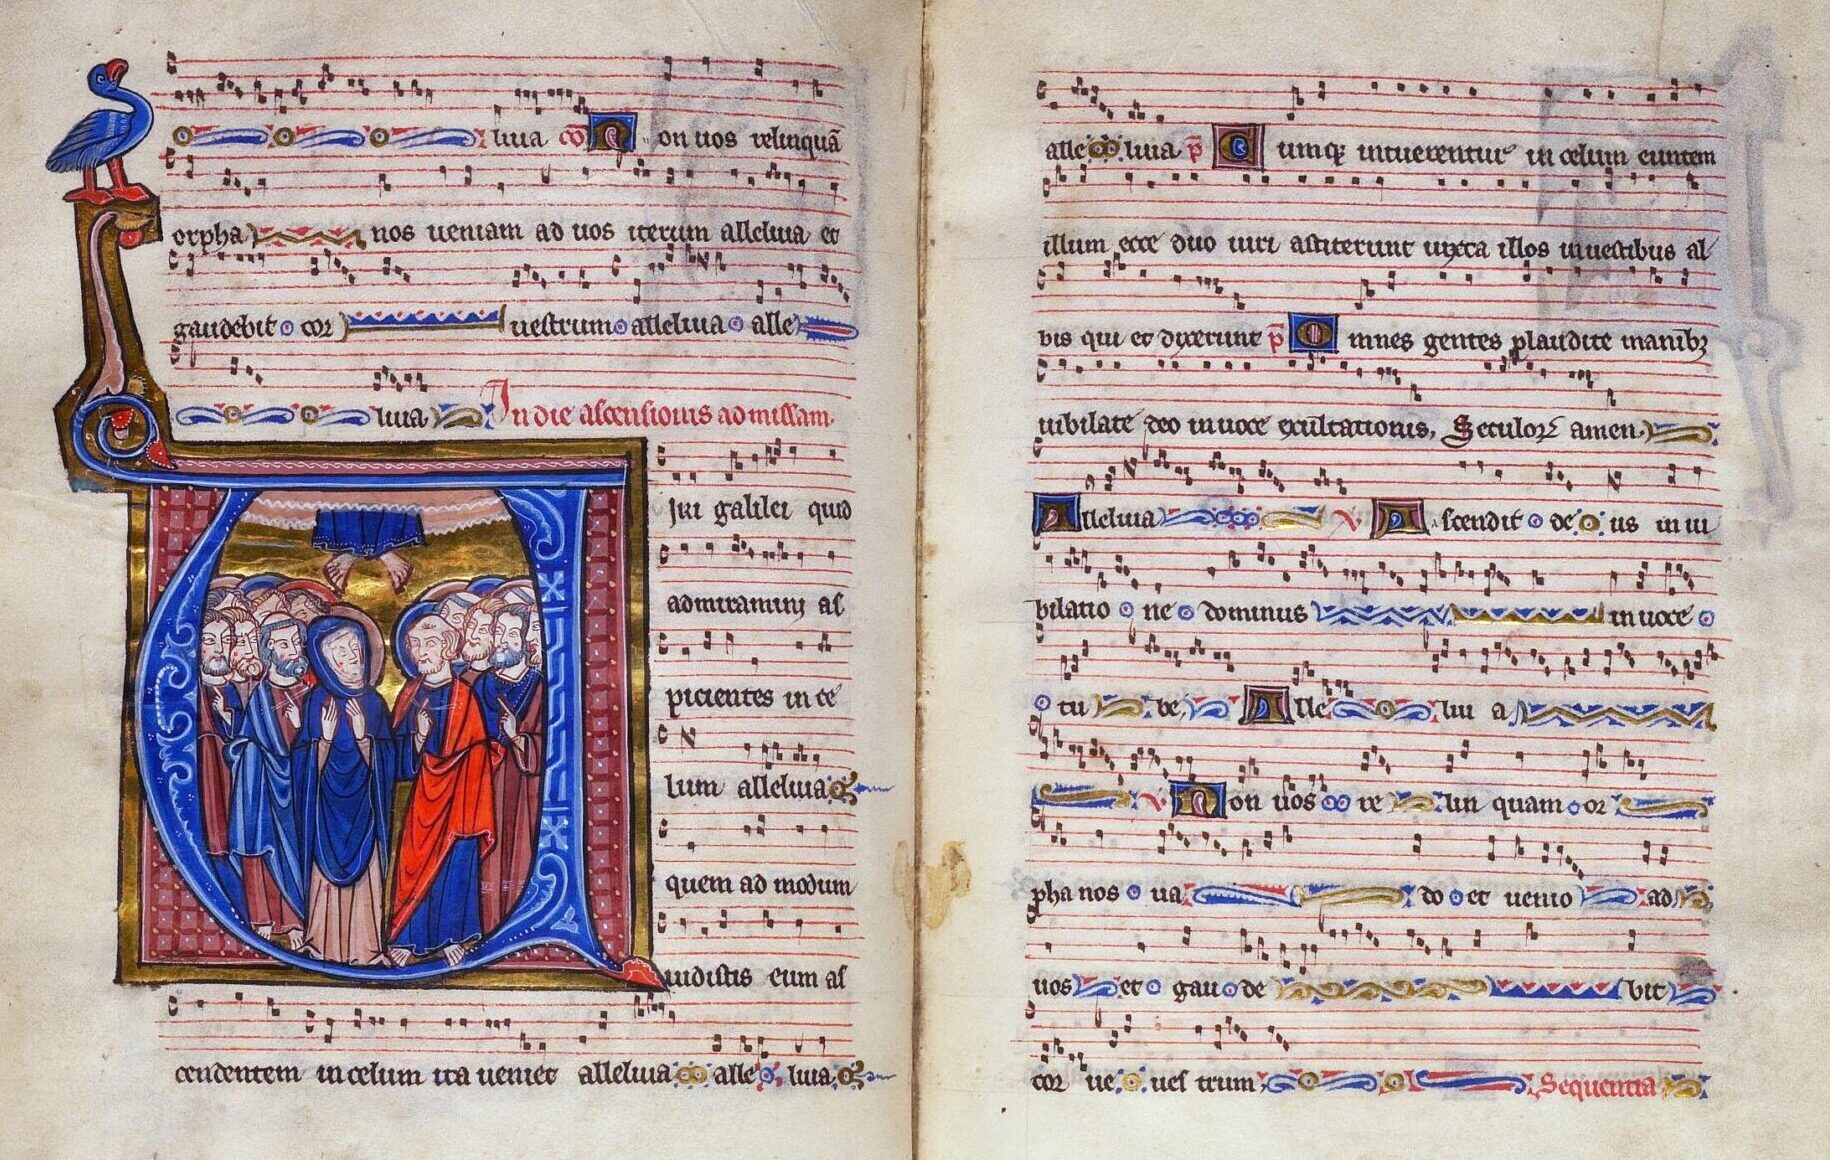 luia co Non uos relinquã
orpha nos ueniam ad uos iterum alleluia et
gaudebit cor uestrum alleluia alle
luia In die ascensionis ad missam.
Uiri galilei quid
admiramini as
picientes in ce
lum alleluia
quem ad modum
uidistis eum as
cendentem in celum ita ueniet alleluia alle luia
alle luia p̃ Cumqꝫ intuerentur in celum euntem
illum ecce duo uiri astiterunt iuxta illos in uestibus al
bis qui et dixerunt p̃ Omnes gentes plaudite manibꝫ
iubilate deo in uoce exultationis, Seculoꝝ amen
Alleluia v Ascendit de us in iu
bilatio ne dominus in uoce
tu be, Alle lui a
v Non uos re lin quam or
pha nos ua do et uenio ad
uos et gau de bit
cor ue ues trum Sequentia